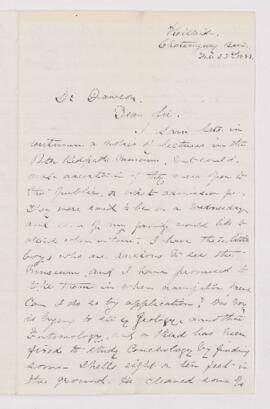 Dr Dawson.
Dear Sir.
I saw late in
a notice of lectures in the
Peter Redpath Museum, but could
not ascertain if they were open to
the public, or what admission fee.
They were said to be on a Wednesday
and some of my family would like to
attend when in town. I have three little
boys who are anxious to see the
Museum, and I have promised to
take them in when
Can I do so by application? One boy
is trying to study Geology, another
Entomology, and a third has been
fired to study Conchology by finding
some shells eight or ten feet in
the ground. He cleaned some